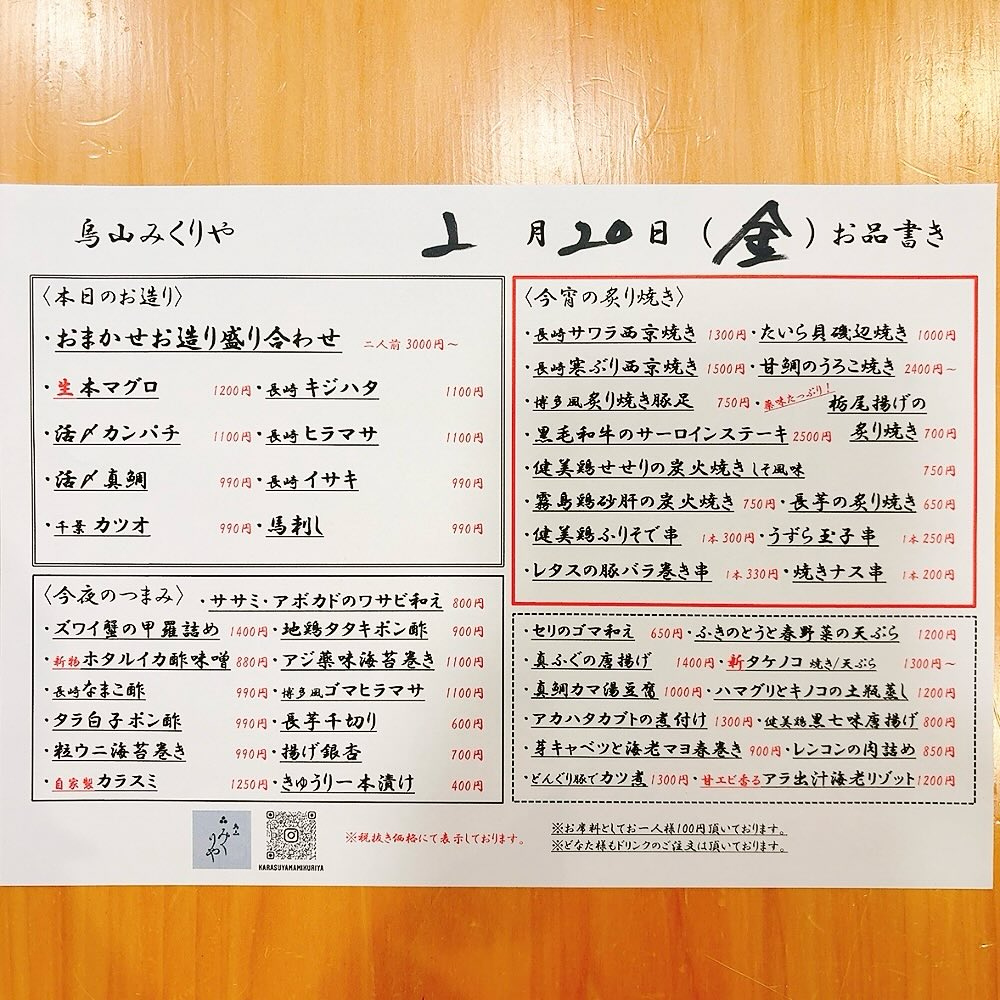 烏山みくりや 2月20日(金)お品書き
〈本日のお造り〉
・おまかせお造り盛り合わせ 二人前 3000円～
・生本マグロ 1200円・長崎キジハタ 1100円
・活〆カンパチ 1100円・長崎ヒラマサ 1100円
・活〆真鯛 990円・長崎イサキ 990円
・千葉カツオ 990円・馬刺し 990円
〈今夜のつまみ〉・ササミ・アボカドのワサビ和え 800円
・ズワイ蟹の甲羅詰め 1400円・地鶏タタキポン酢 900円
・新物ホタルイカ酢味噌 880円・アジ薬味海苔巻き 1100円
・長崎なまこ酢 990円・博多風ゴマヒラマサ 1100円
・タラ白子ポン酢 990円・長芋千切り 600円
・粒ウニ海苔巻き 990円・揚げ銀杏 700円
・自家製カラスミ 1250円・きゅうり一本漬け 400円
〈今宵の炙り焼き〉
・長崎サワラ西京焼き 1300円・たいら貝磯辺焼き 1000円
・長崎寒ぶり西京焼き 1500円・甘鯛のうろこ焼き 2400円～
・博多風炙り焼き豚足 750円・薬味たっぷり!栃尾揚げの
・黒毛和牛のサーロインステーキ 2500円 炙り焼き 700円
・健美鶏せせりの炭火焼き しそ風味 750円
・霧島鶏砂肝の炭火焼き 750円・長芋の炙り焼き 650円
・健美鶏ふりそで串 1本300円・うずら玉子串 1本250円
・レタスの豚バラ巻き串 1本330円・焼きナス串 1本200円
・セリのゴマ和え 650円・ふきのとうと春野菜の天ぷら 1200円
・真ふぐの唐揚げ 1400円・新タケノコ 焼き/天ぷら 1300円～
・真鯛カマ湯豆腐 1000円・ハマグリとキノコの土瓶蒸し 1200円
・アカハタカブトの煮付け 1300円・健美鶏黒七味唐揚げ 800円
・芽キャベツと海老マヨ春巻き 900円・レンコンの肉詰め 850円
・どんぐり豚でカツ煮 1300円・甘エビ香るアラ出汁海老リゾット 1200円
みくりや
KARASUYAMAMIKURIYA
※税抜き価格にて表示しております。
※お席料としてお一人様100円頂いております。
※どなた様もドリンクのご注文は頂いております。